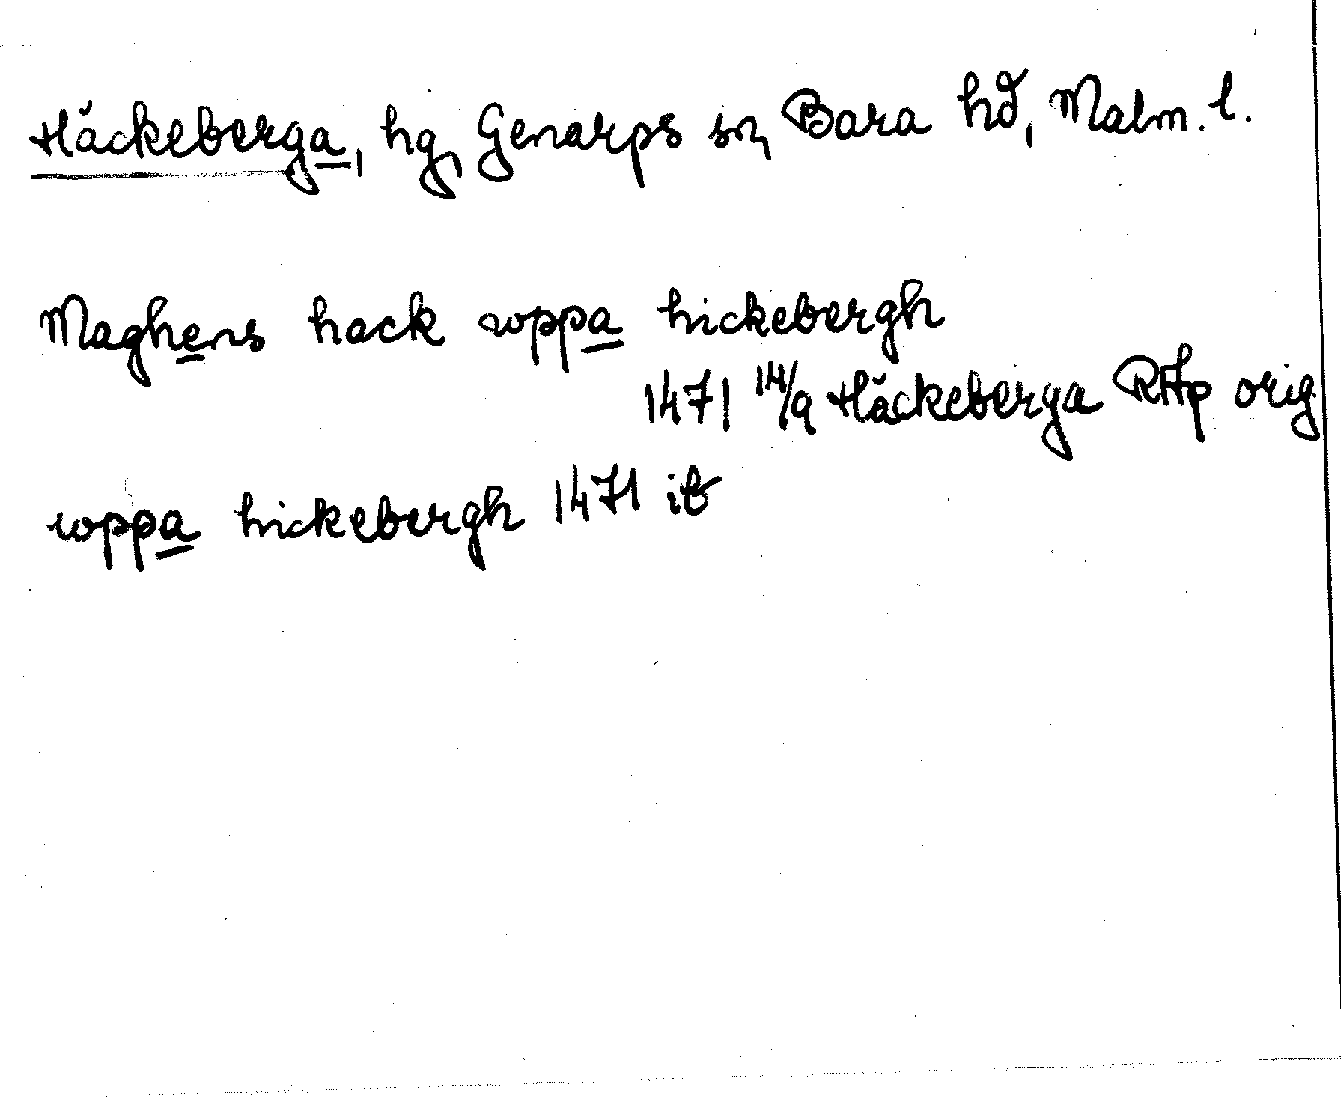 Häckeberga, hg, Genarps sn, Bara hd, Malm. l.
Maghens hack uppa hickebergh
1471 14/9 Häckeberga RAp orig
uppa hickebergh 1471 ib